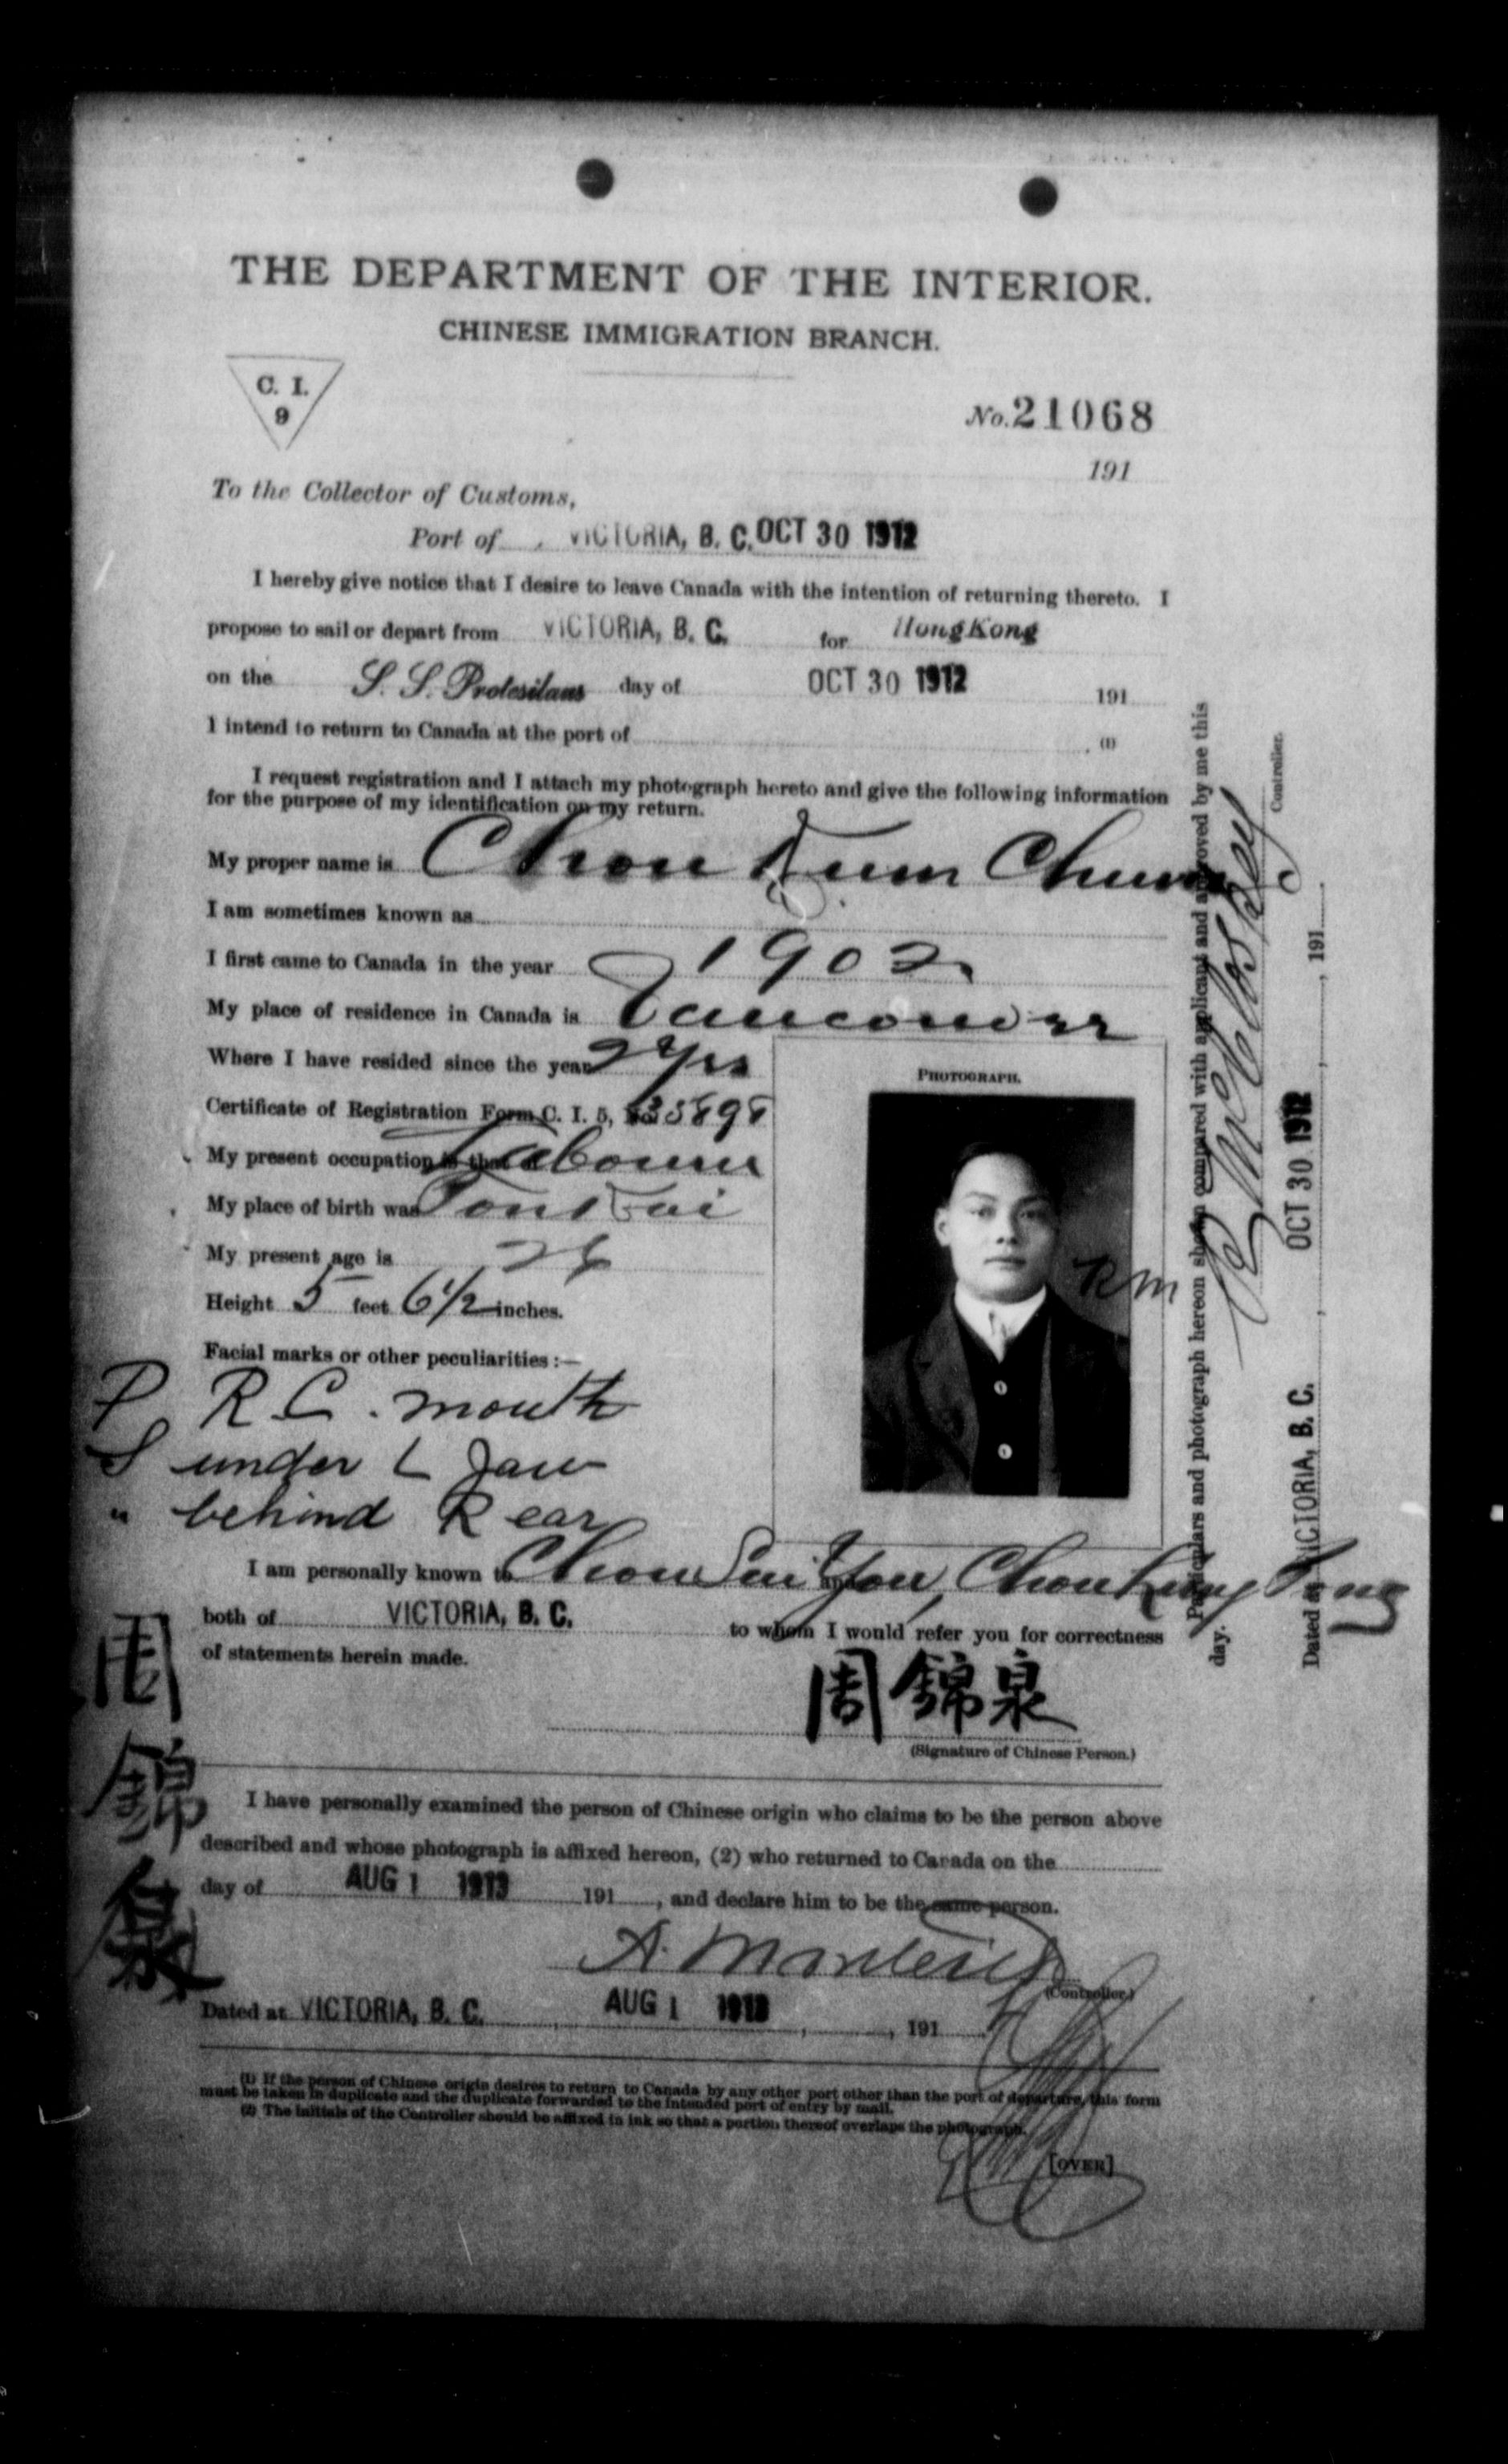 THE DEPARTMENT OF THE INTERIOR.
CHINESE IMMIGRATION BRANCH.
C. I.
9
No. 21068
191
To the Collector of Customs,
Port of VICTORIA, B. C. OCT 30 1912
I hereby give notice that I desire to leave Canada with the intention of returning thereto. I
propose to sail or depart from VICTORIA, B. C. for HongKong
on the S. S. Protesilaus day of OCT 30 1912 191
I intend to return to Canada at the port of . (1)
I request registration and I attach my photograph hereto and give the following information
for the purpose of my identification on my return.
My proper name is Chow Kum Chung
I am sometimes known as
I first came to Canada in the year 1902
My place of residence in Canada is Vancouver
Where I have resided since the year 2 yrs
Certificate of Registration Form C. I. 5, 35898
My present occupation is that Labourer
My place of birth was
My present age is 28
Height 5 feet 6 1/2 inches.
Facial marks or other peculiarities :—
P R C. mouth
S under L Jaw
" behind R ear
PHOTOGRAPH.
RM
I am personally known to Chow Sui You, Chow Tong
both of VICTORIA, B. C. to whom I would refer you for correctness
of statements herein made.
周錦泉
(Signature of Chinese Person.)
I have personally examined the person of Chinese origin who claims to be the person above
described and whose photograph is affixed hereon, (2) who returned to Canada on the
day of AUG 1 1913 191 , and declare him to be the same person.
(Controller.)
Dated at VICTORIA, B. C. , AUG 1 1913 , , 191
(1) If the person of Chinese origin desires to return to Canada by any other port other than the port of departure, this form
must be taken in duplicate and the duplicate forwarded to the intended port of entry by mail.
(2) The initials of the Controller should be affixed in ink so that a portion thereof overlaps the photograph.
[OVER]
周錦泉
Particulars and photograph hereon shown compared with applicant and approved by me this
day.
Controller.
Dated at VICTORIA, B. C. , OCT 30 1912 , 191